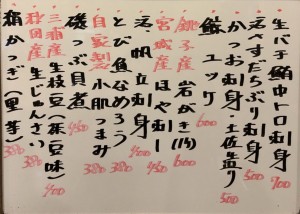 生バチ鮪中トロ刺身 700
活〆すだちぶり刺身 500
かつお刺身・土佐造り 500
鯨ユッケ 600
銚子産 岩がき(1ケ) 600
宮城産 ほや刺し 450
活、帆立刺身 400
とび魚なめろう 380
自家製 小肌つまみ 380
磯つぶ貝煮 450
三浦産 生枝豆(茶豆味) 400
秋田産 生じゅんさい 380
絹かつぎ(里芋) 380